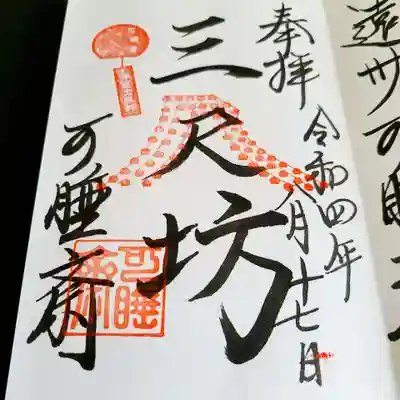 奉拝
令和四年
八月十七日
三尺坊
可睡斎
可睡斎
遠州可睡三